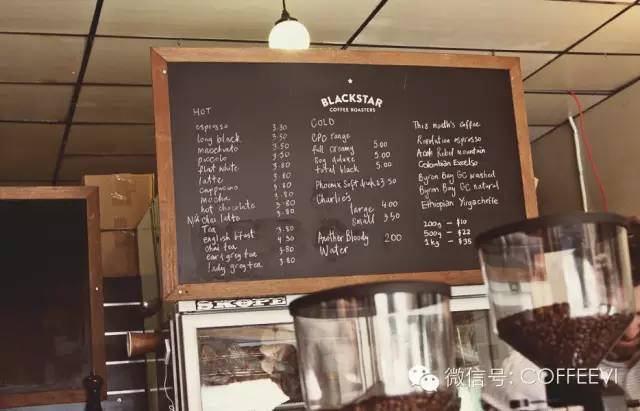 BLACKSTAR
COFFEE ROASTERS
HOT
espresso 3.30
long black 3.50
macchiato 3.50
piccolo 3.50
flat white 3.80
latte 3.80
cappucino 3.80
mocha 3.80
hot chocolate 3.80
chai latte 3.80
Tea
english b'fast 3.80
chai tea 4.30
earl grey tea 3.80
lady grey tea 3.80
COLD
CPD range
full creamy 5.00
soy deluxe 5.00
total black 5.00
Phoenix Soft drinks 3.50
Charlie's
large 4.00
small 3.50
Another Bloody 2.00
Water
This month's coffee
Revolution espresso
Aceh Rebel mountain
Colombian Excelso
Byron Bay GC washed
Byron Bay GC natural
Ethiopian Yirgacheffe
200g - $10
500g - $22
1kg - $35
SKOPE
微信号: COFFEEVI